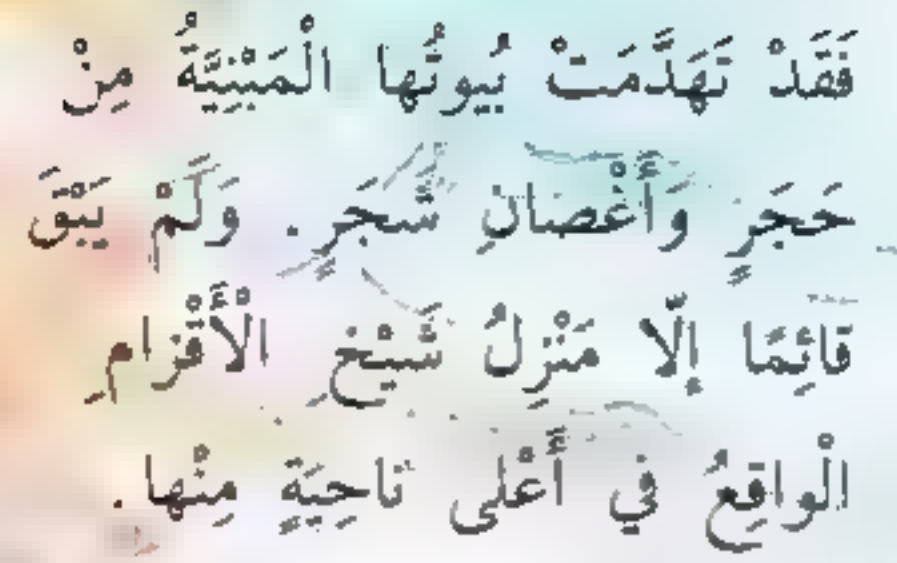 فَقَدْ تَهَدَّمَتْ بُيوتُها الْمَبْنِيَّةُ مِنْ
حَجَرٍ وَأَغْصانِ شَجَرٍ. وَلَمْ يَبْقَ
قائِمًا إِلّا مَنْزِلُ شَيْخِ الْأَقْزامِ
الْواقِعُ في أَعْلى ناحِيَةٍ مِنْها.